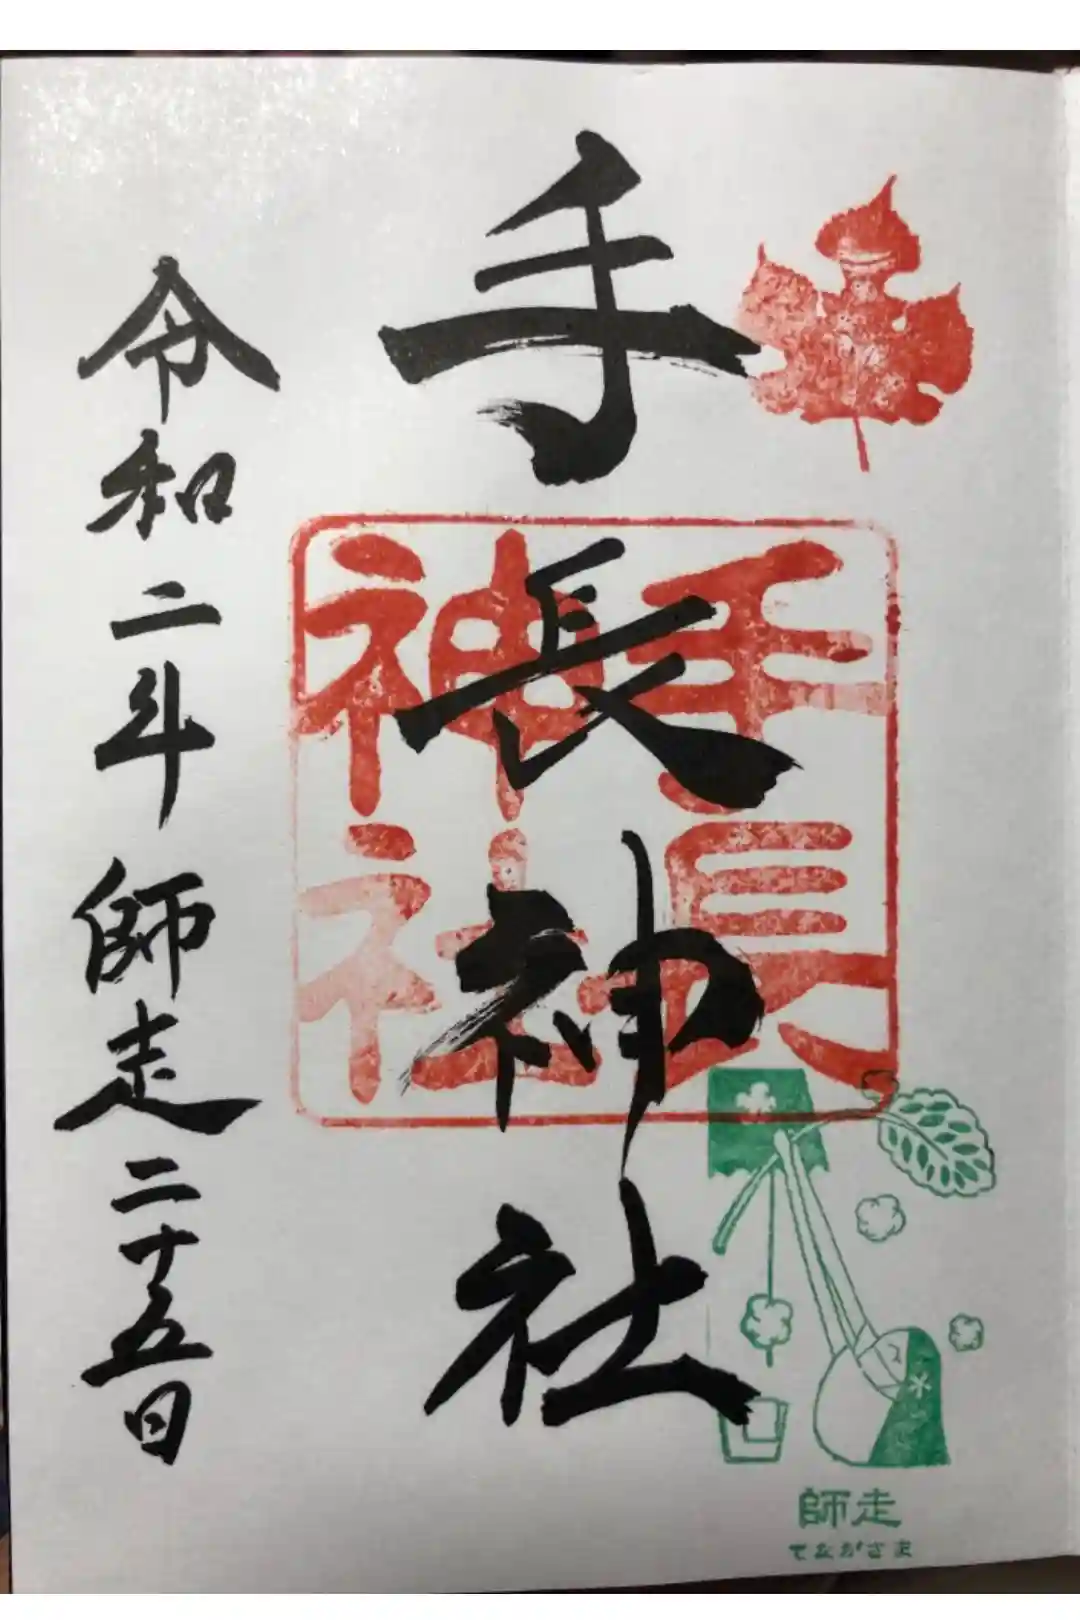 手長神社
手長神社
令和二年師走二十五日
師走
てながさま